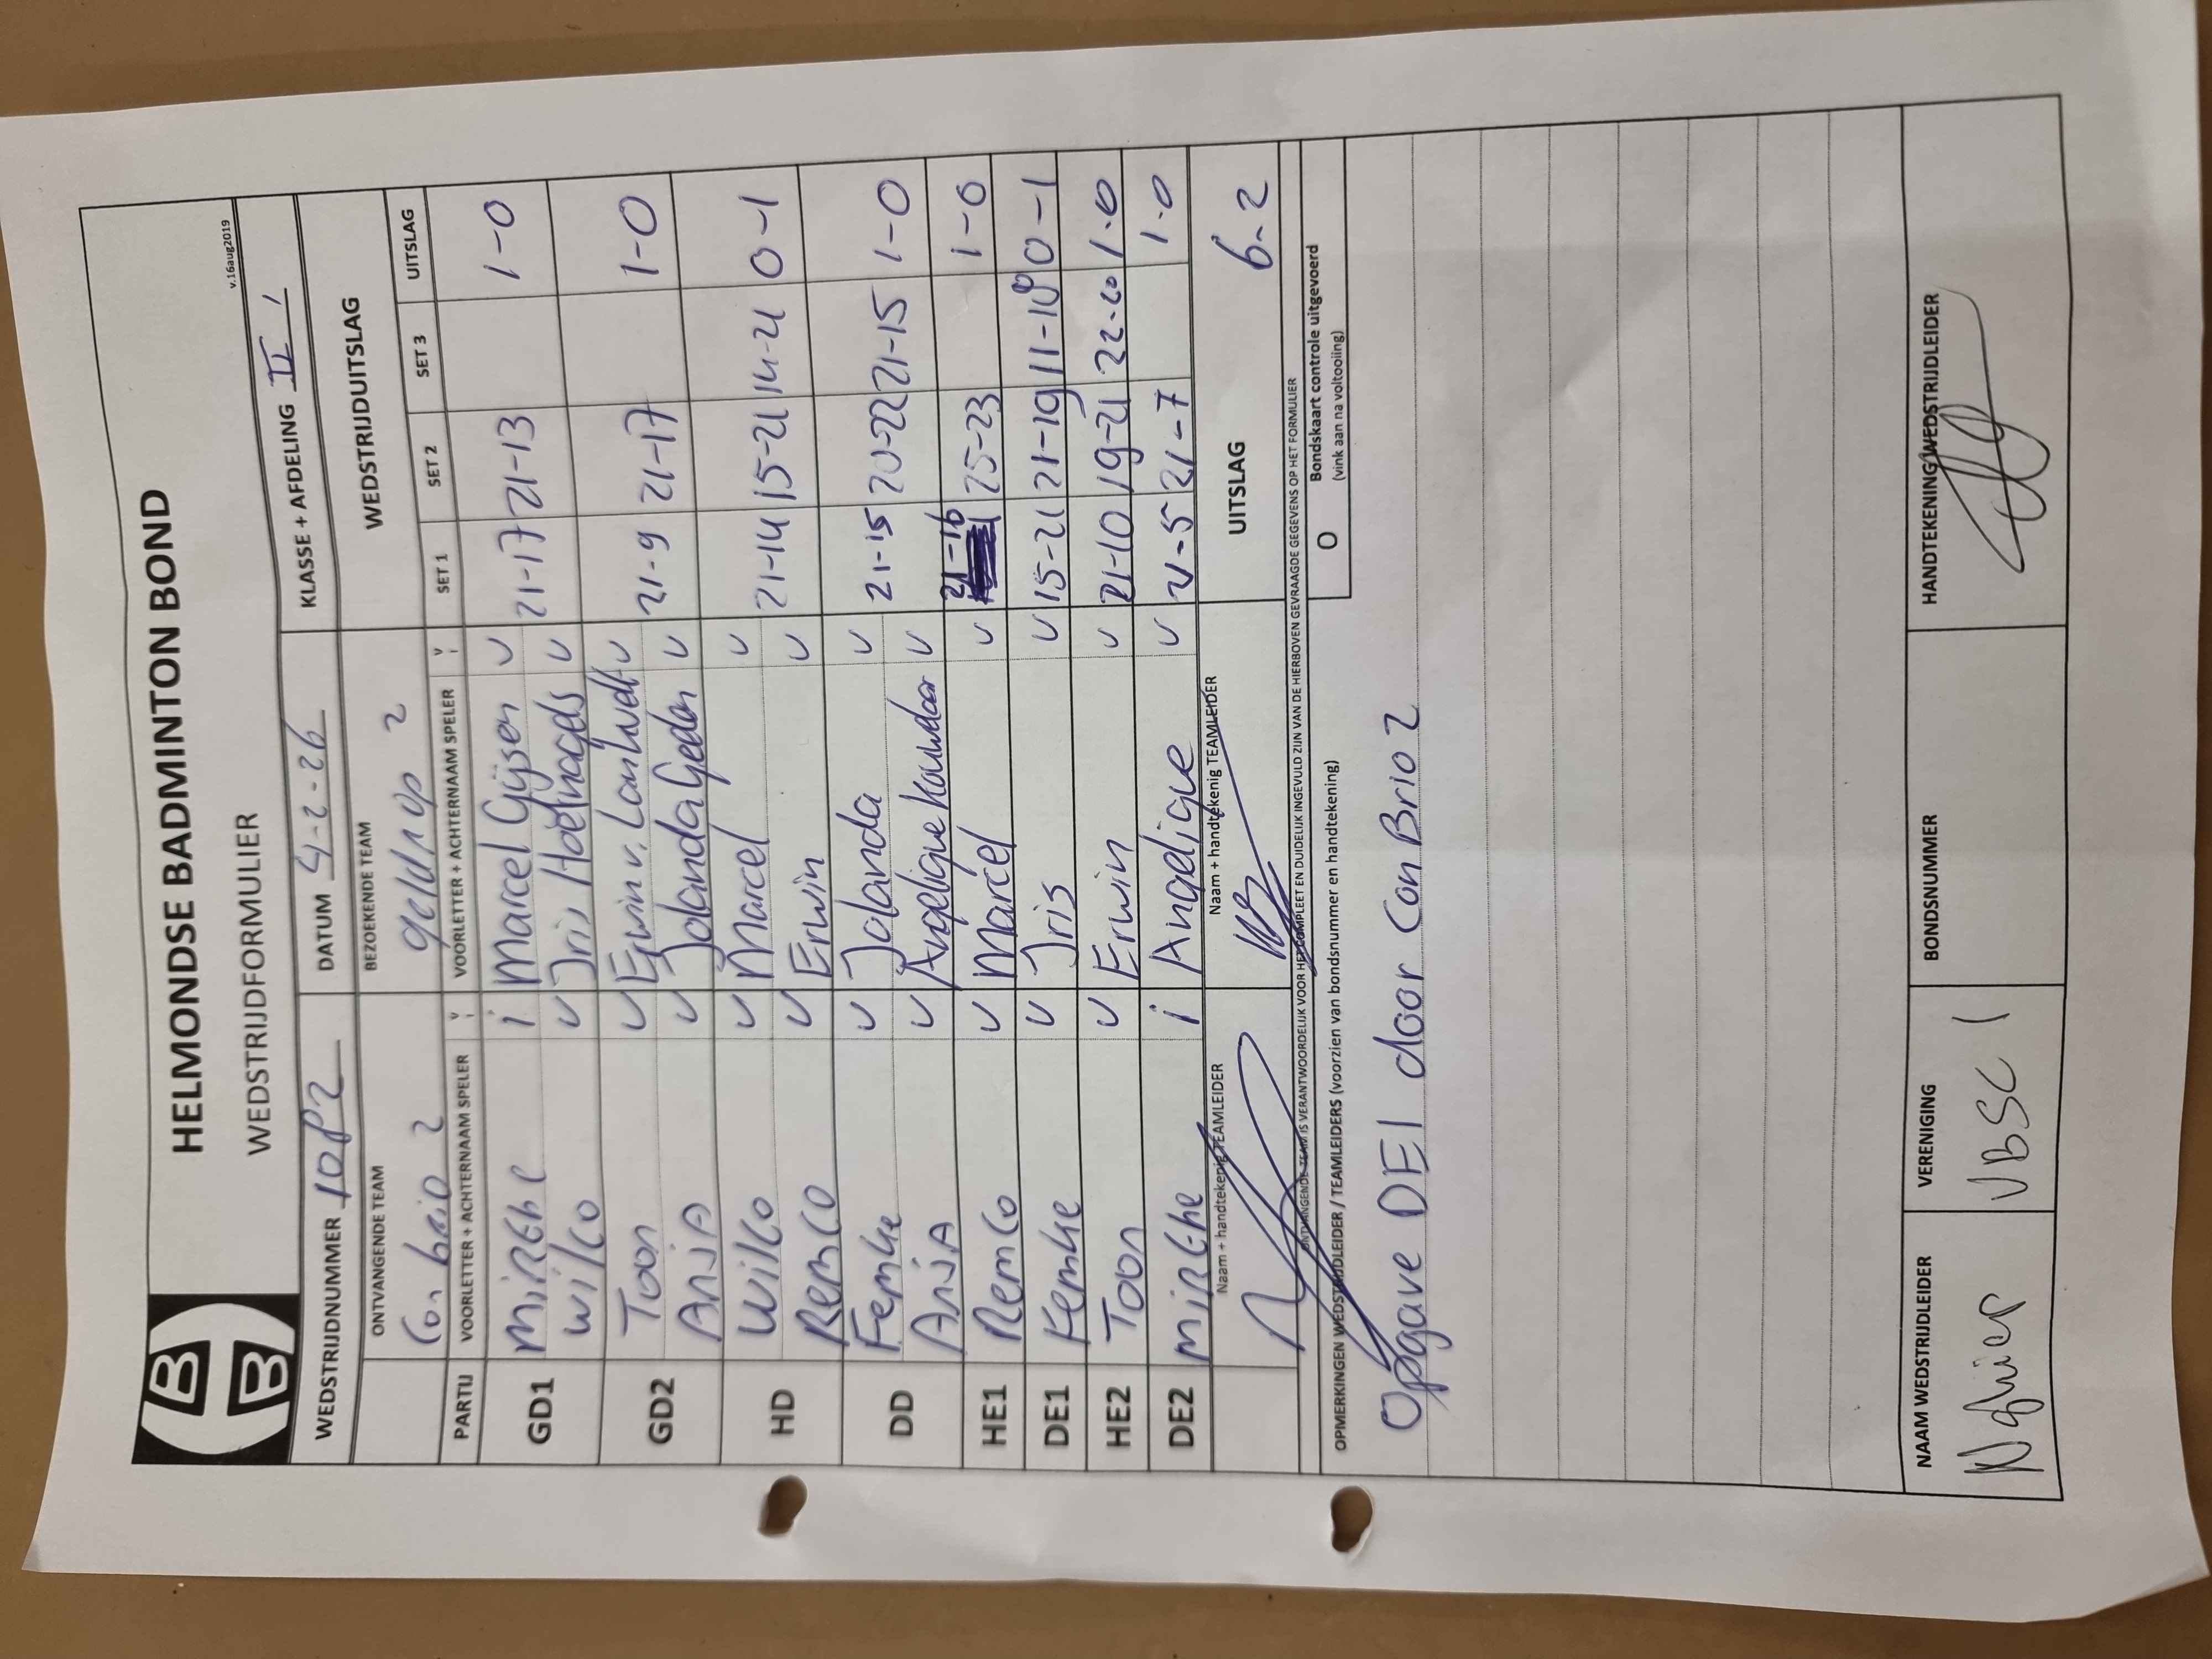 HELMONDSE BADMINTON BOND
WEDSTRIJDFORMULIER
v.16aug2019
WEDSTRIJDNUMMER 10P2 DATUM 4-2-26 KLASSE + AFDELING II,
ONTVANGENDE TEAM BEZOEKENDE TEAM WEDSTRIJDUITSLAG
Con brio 2 geldrop 2
PARTIJ VOORLETTER + ACHTERNAAM SPELER v/i VOORLETTER + ACHTERNAAM SPELER v/i SET 1 SET 2 SET 3 UITSLAG
GD1 Mirthe i Marcel Gijsen v 21-17 21-13 1-0
Wilco v Iris Hoefnagels v
GD2 Toon v Erwin v. v 21-9 21-17 1-0
Anja v Jolanda v
HD Wilco v Marcel v 21-14 15-21 14-21 0-1
Remco v Erwin v
DD Femke v Jolanda v 21-15 20-22 21-15 1-0
Anja v Angelique v
HE1 Remco v Marcel v 21-16 25-23 1-0
DE1 Femke v Iris v 15-21 21-19 11-18 0-1
HE2 Toon v Erwin v 21-10 19-21 22-20 1-0
DE2 Mirthe i Angelique v 21-5 21-7 1-0
Naam + handtekenig TEAMLEIDER Naam + handtekenig TEAMLEIDER UITSLAG 6-2
ONTVANGENDE TEAM IS VERANTWOORDELIJK VOOR HET COMPLEET EN DUIDELIJK INGEVULD ZIJN VAN DE HIERBOVEN GEVRAAGDE GEGEVENS OP HET FORMULIER
OPMERKINGEN WEDSTRIJDLEIDER / TEAMLEIDERS (voorzien van bondsnummer en handtekening) O Bondskaart controle uitgevoerd
(vink aan na voltooiing)
Opgave DE1 door Con Brio 2
NAAM WEDSTRIJDLEIDER VERENIGING BONDSNUMMER HANDTEKENING WEDSTRIJDLEIDER
VBSC 1